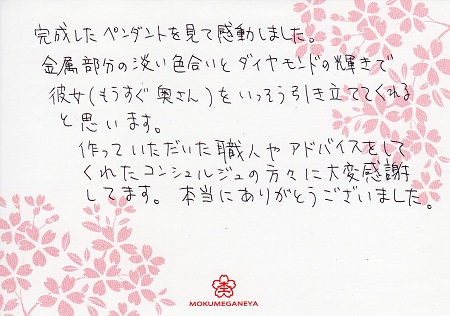 完成したペンダントを見て感動しました。
金属部分の淡い色合いとダイヤモンドの輝きで
彼女(もうすぐ奥さん)をいっそう引き立ててくれる
と思います。
作っていただいた職人やアドバイスをして
くれたコンシェルジュの方々に大変感謝
してます。本当にありがとうございました。
MOKUMEGANEYA